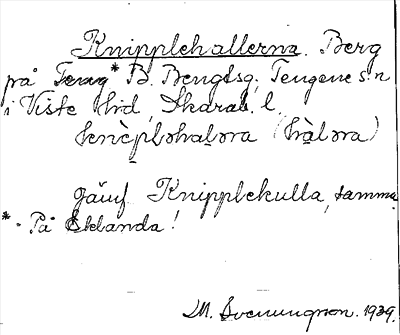 Knipplehallerna. Berg
på Terag* B. Bengtsg, Tengene sn
i Viste hrd, Skarab. l.
knèplehaḷəra (hàḷəra)
jämf Knipplekulla, samma
* På Eklanda!
M. Svenungson. 1939.